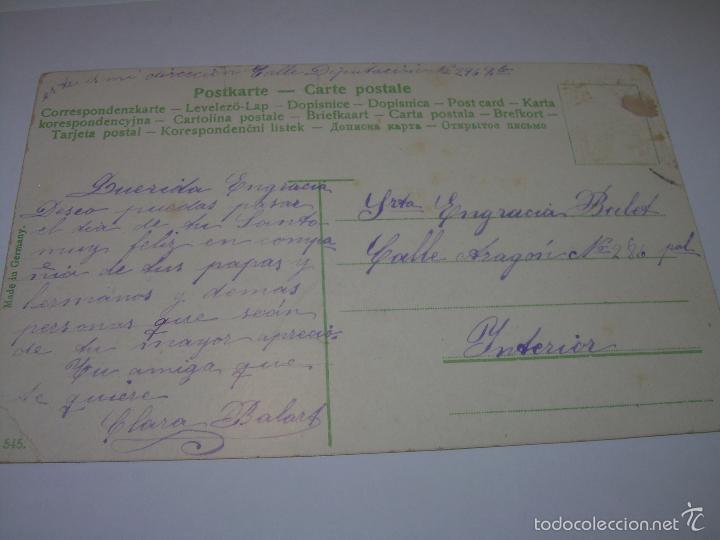 es de mi dirección Calle Diputación Nº 296
Postkarte — Carte postale
Correspondenzkarte — Levelező-Lap — Dopisnice — Dopisnica — Post card — Karta
korespondencyjna — Cartolina postale — Briefkaart — Carta postala — Brefkort —
Tarjeta postal — Korespondenční listek — Дописна карта — Открытое письмо
Querida Engracia
Deseo puedas pasar
el dia de tu Santo
muy feliz en compa
ñia de tus papas y
hermanos y demas
personas que seán
de tu mayor aprecio.
Tu amiga que
te quiere
Clara Balart
Srta Engracia Bulet
Calle Aragón Nº 286 pal
Interior
Made in Germany.
545.
todocoleccion.net